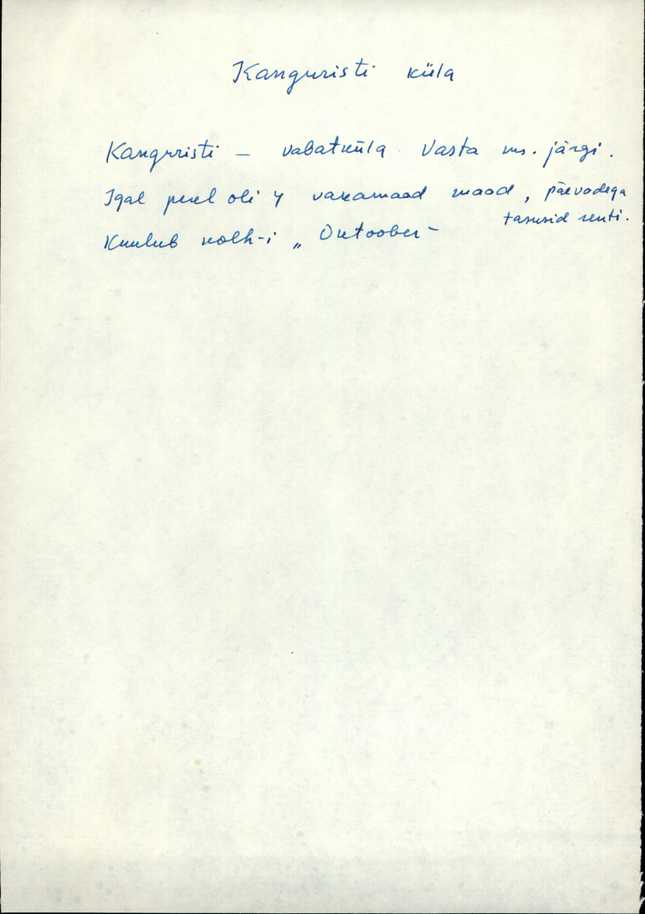 Kanguristi küla
Kanguristi – vabatküla Vasta ms. järgi.
Igal perel oli 4 vakamaad maad, päevadega
tasusid renti.
Kuulub kolh-i „Oktoober"